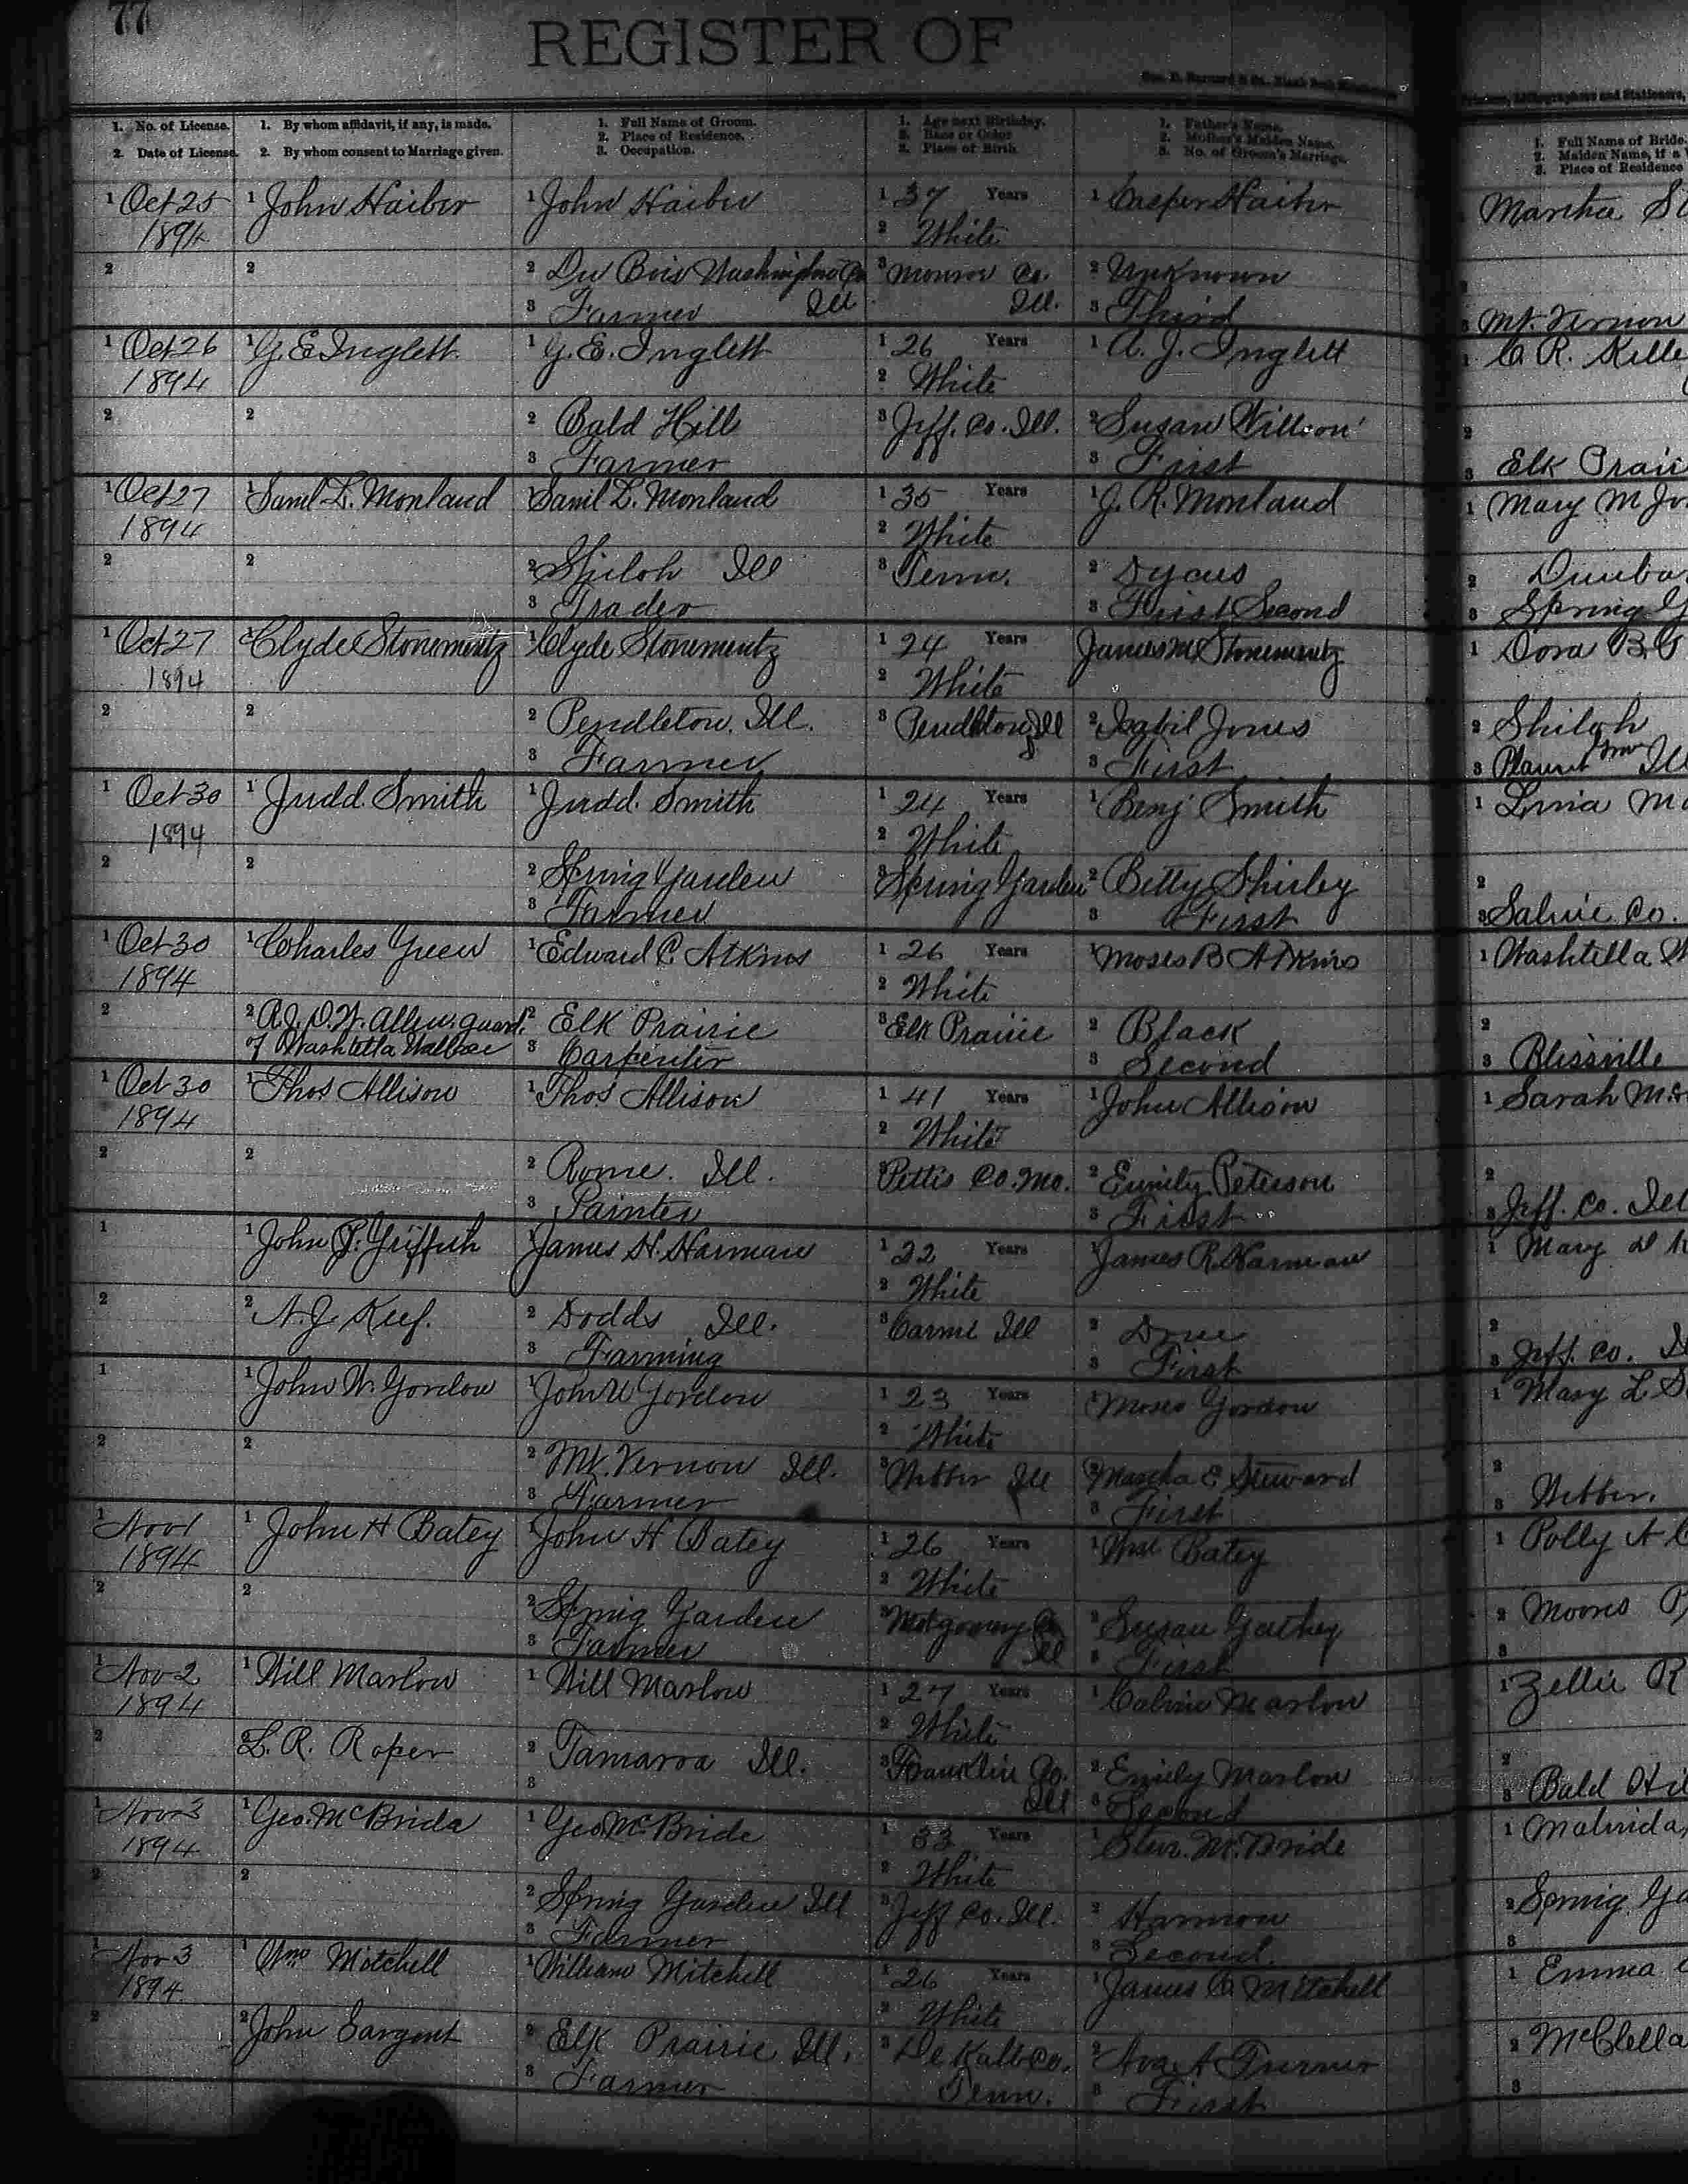 77
REGISTER OF
1. No. of License. 1. By whom affidavit, if any, is made. 1. Full Name of Groom. 1. Age next Birthday. 1. Father's Name. 1. Full Name of Bride.
2. Place of Residence. 2. Race or Color 2. Mother's Maiden Name. 2. Maiden Name, if a
2. Date of License. 2. By whom consent to Marriage given. 3. Occupation. 3. Place of Birth. 3. No. of Groom's Marriage. 3. Place of Residence
1 Oct 25 1 John Haiber 1 John Haiber 1 37 Years 1 Casper Haiber Martha
1894 2 White
2 2 2 Du Bois Washington Co 3 Monroe Co. 2 Unknown
3 Farmer Ill Ill. 3 Third 3 Mt. Vernon
1 Oct 26 1 G E Inglett 1 G. E. Inglett 1 26 Years 1 A. J. Inglett 1 C. R. Kelle
1894 2 White
2 2 2 Bald Hill 3 Jeff. Co. Ill. 2 Susan 2
3 Farmer 3 First 3 Elk Prair
1 Oct 27 1 Saml L. Monland 1 Saml L. Monland 1 35 Years 1 J. R. Monland 1 Mary M Jo
1894 2 White
2 2 2 Shiloh Ill 3 Tenn. 2 Dycus 2 Dunba
3 Trader 3 First Second 3 Spring G
1 Oct 27 1 Clyde Stonementz 1 Clyde Stonementz 1 24 Years James M Stonementz 1 Dora B. G
1894 2 White
2 2 2 Pendleton, Ill. 3 Pendleton Ill 2 Izabil Jones 2 Shiloh
3 Farmer 3 First 3 Ill
1 Oct 30 1 Judd Smith 1 Judd. Smith 1 24 Years 1 Benj Smith 1 M
1894 2 White
2 2 2 Spring Garden 3 Spring Garden 2 Betty Shirley 2
3 Farmer 3 First 3 Saline Co.
1 Oct 30 1 Charles Green 1 Edward C. Atkins 1 26 Years 1 Moses B Atkins 1 Washtella W
1894 2 White
2 2 Allen, guard. 2 Elk Prairie 3 Elk Prairie 2 Black 2
of Washtella Wallace 3 Carpenter 3 Second 3 Blissville
1 Oct 30 1 Thos Allison 1 Thos Allison 1 41 Years 1 John Allison 1 Sarah
1894 2 White
2 2 2 Rome. Ill. 3 Pettis Co. Mo. 2 Emily Peterson 2
3 Painter 3 First 3 Jeff. Co. Ill
1 1 John T. Griffith 1 James H. Harman 1 22 Years 1 James R. Harman 1 Mary
2 White
2 2 N. J. Keef. 2 Dodds Ill. 3 Carmi Ill 2 2
3 Farming 3 First 3 Jeff. Co.
1 1 John W. Gordon 1 John W Gordon 1 23 Years 1 Moses Gordon 1 Mary L
2 White
2 2 2 Mt. Vernon Ill. 3 Webber Ill 2 Martha E Steward 2
3 Farmer 3 First 3 Webber.
1 Nov 1 1 John H Batey 1 John H Batey 1 26 Years 1 Wm Batey 1 Polly A C
1894 2 White
2 2 2 Spring Garden 3 Motgomery Co 2 Susan 2 Moores
3 Farmer Ill 3 First 3
1 Nov 2 1 Will Marlow 1 Will Marlow 1 27 Years 1 Calvin Marlow 1 Zellie R
1894 2 White
2 2 L. R. Roper 2 Tamaroa Ill. 3 Franklin Co. 2 Emily Marlow 2
3 Ill 3 Second 3 Bald Hil
1 Nov 3 1 Geo. McBride 1 Geo McBride 1 33 Years 1 McBride 1 Malinda
1894 2 White
2 2 2 Spring Garden Ill 3 Jeff Co. Ill. 2 Harmon 2 Spring Ga
3 Farmer 3 Second. 3
1 Nov 3 1 Wm Mitchell 1 William Mitchell 1 26 Years 1 James C Mitchell 1 Emma
1894 2 White
2 2 John Sargent 2 Elk Prairie Ill. 3 De Kalb Co. 2 Ava A Turner 2 McClella
3 Farmer Tenn. 3 First 3